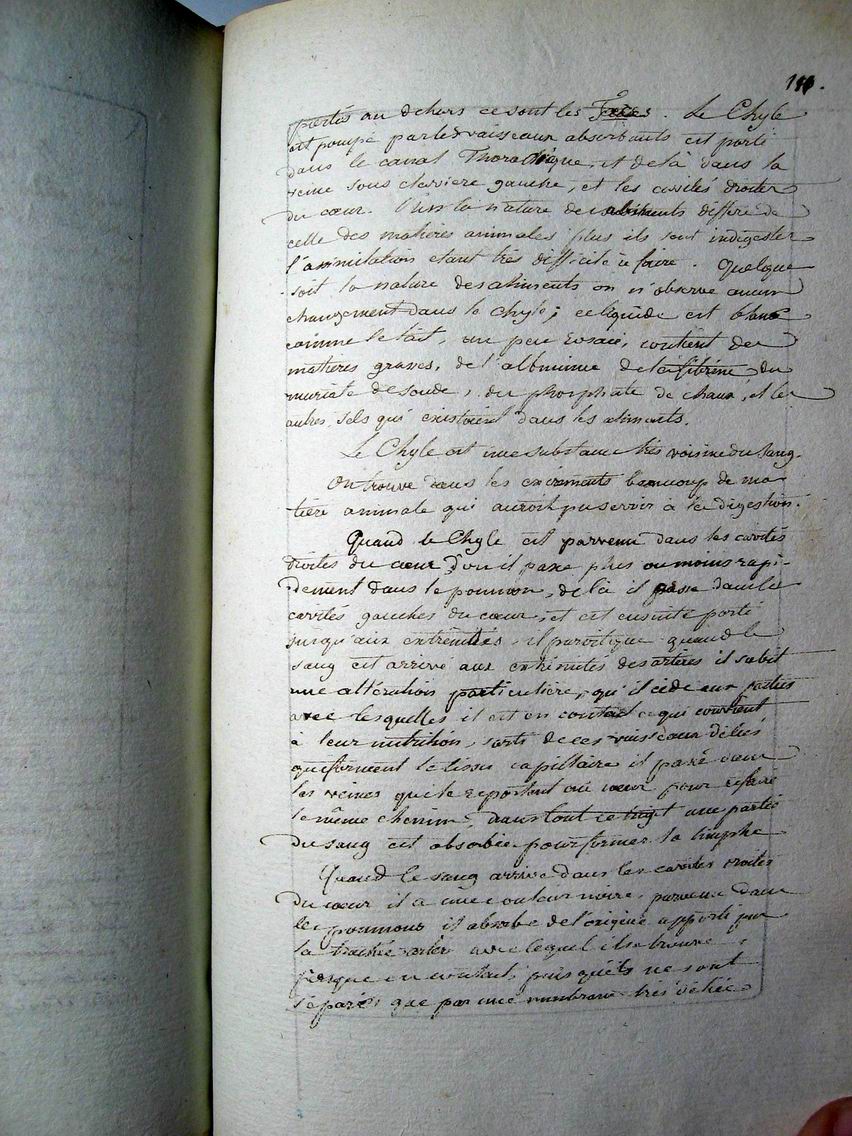 portés au dehors ce sont les Fèces. Le Chyle
est pompé par les vaisseaux absorbants est porté
dans le canal Thorachique, et de là dans la
veine sous claviere gauche, et les cavités droites
du cœur. la nature des aliments differe de
celle des matieres animales plus ils sont indigestes
l'assimilation etant très difficile à faire. Quelque
soit la nature des aliments on n'observe aucun
changement dans le Chyle; ce liquide est blanc
comme le lait, un peu rosacé, contient des
matieres grasses, de l'albumine de la fibrine, du
muriate de soude, du phosphate de chaux, et les
autres sels qui existoient dans les aliments.
Le Chyle est une substance très voisine du sang.
On trouve dans les excréments beaucoup de ma-
tière animale qui auroit pu servir à la digestion.
Quand le Chyle est parvenu dans les cavités
droites du cœur d'où il passe plus ou moins rapi-
dement dans le poumon, de là il passe dans les
cavités gauches du cœur, et est ensuite porté
jusqu'aux extremités, il paroit que quand le
sang est arrivé aux extrémités des artères il subit
une altération particulière, qu'il cède aux parties
avec lesquelles il est en contact ce qui convient
à leur nutrition, sorti de ces vaisseaux déliés
qui forment le tissu capillaire il passe dans
les veines qui le reportent au cœur pour refaire
le même chemin, dans tout ce trajet une partie
du sang est absorbée pour former la limphe
Quand le sang arrive dans les cavités droites
du cœur il a une couleur noire, parvenu dans
les poumons il absorbe de l'origène apporté par
la trachée artère avec lequel il se trouve
presque en contact, puisqu'ils ne sont
séparés que par une membrane très déliée.